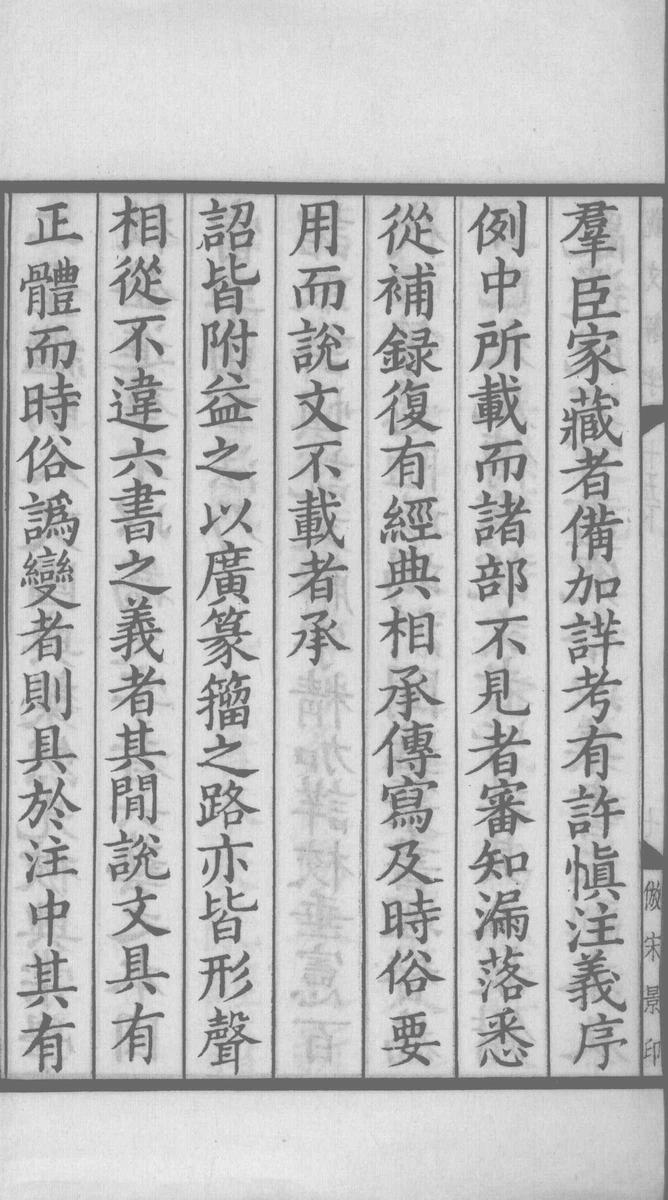 羣臣家藏者備加詳考有許愼注義序
例中所載而諸部不見者審知漏落悉
從補録復有經典相承傳寫及時俗要
用而說文不載者承
詔皆附益之以廣篆籀之路亦皆形聲
相從不違六書之義者其閒說文具有
正體而時俗譌變者則具於注中其有
倣宋景印